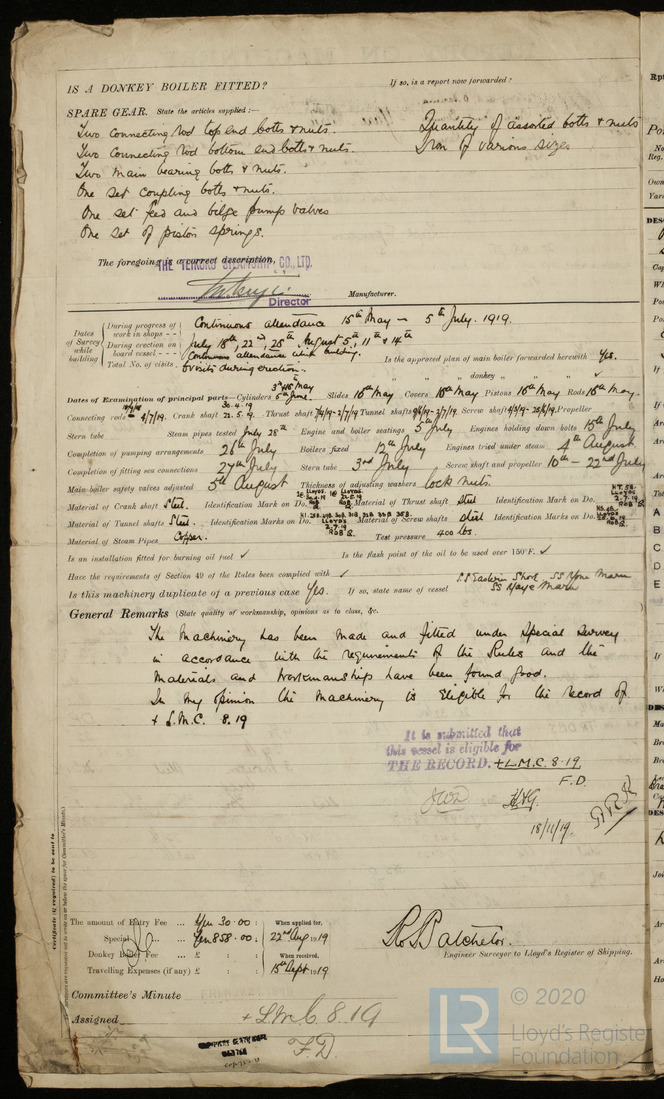 IS A DONKEY BOILER FITTED?
If so, is a report now forwarded?
SPARE GEAR. State the articles supplied:—
Two connecting rod top end bolts & nuts.
Quantity of assorted bolts & nuts
Two connecting rod bottom end bolts & nuts.
Iron of various sizes
Two main bearing bolts & nuts.
One set coupling bolts & nuts.
One set feed and bilge pump valves
One set of piston springs.
The foregoing is a correct description,
THE TEIKOKU STEAMSHIP CO., LTD.
Director
Manufacturer.
Dates of Survey while building
During progress of work in shops - - Continuous attendance 15th May — 5th July. 1919.
During erection on board vessel - - - July 18th, 22nd, 25th August 5th, 11th & 14th
Total No. of visits Continuous attendance whilst building.
6 visits during erection.
Is the approved plan of main boiler forwarded herewith Yes.
" " " donkey " " ✓
Dates of Examination of principal parts—Cylinders Slides 16th May Covers 16th May Pistons 16th May Rods 16th May.
Connecting rods 4/7/19. Crank shaft 22.5.19. Thrust shaft 2/7/19 Tunnel shafts 2/7/19. Screw shaft Propeller
Stern tube Steam pipes tested July 28th Engine and boiler seatings 5th July Engines holding down bolts 15th July
Completion of pumping arrangements 26th July Boilers fixed 12th July Engines tried under steam 4th August
Completion of fitting sea connections 27th July Stern tube 3rd July Screw shaft and propeller 10th – 22nd July
Main boiler safety valves adjusted 5th August Thickness of adjusting washers lock nuts
Material of Crank shaft Steel. Identification Mark on Do. Material of Thrust shaft Steel Identification Mark on Do.
Material of Tunnel shafts Steel. Identification Marks on Do. Material of Screw shafts Steel Identification Marks on Do.
Material of Steam Pipes Copper. Test pressure 400 lbs.
Is an installation fitted for burning oil fuel ✓ Is the flash point of the oil to be used over 150°F. ✓
Have the requirements of Section 49 of the Rules been complied with ✓
Is this machinery duplicate of a previous case Yes. If so, state name of vessel
General Remarks (State quality of workmanship, opinions as to class, &c.
The Machinery has been made and fitted under Special Survey
in accordance with the requirements of the Rules and the
Materials and Workmanships have been found good.
In my opinion the machinery is eligible for the record of
+ L.M.C. 8.19
It is submitted that
this vessel is eligible for
THE RECORD. +L.M.C. 8.19.
F.D.
18/11/19.
The amount of Entry Fee ... Yen 30.00 : When applied for,
Special ... Yen 858.00 : 22nd Aug 1919
Donkey Boiler Fee ... £ : : When received,
Travelling Expenses (if any) £ : : 15th Sept 1919
Engineer Surveyor to Lloyd's Register of Shipping.
Committee's Minute
Assigned + L.M.C. 8.19
F.D.
© 2020
Lloyd's Register
Foundation
LR